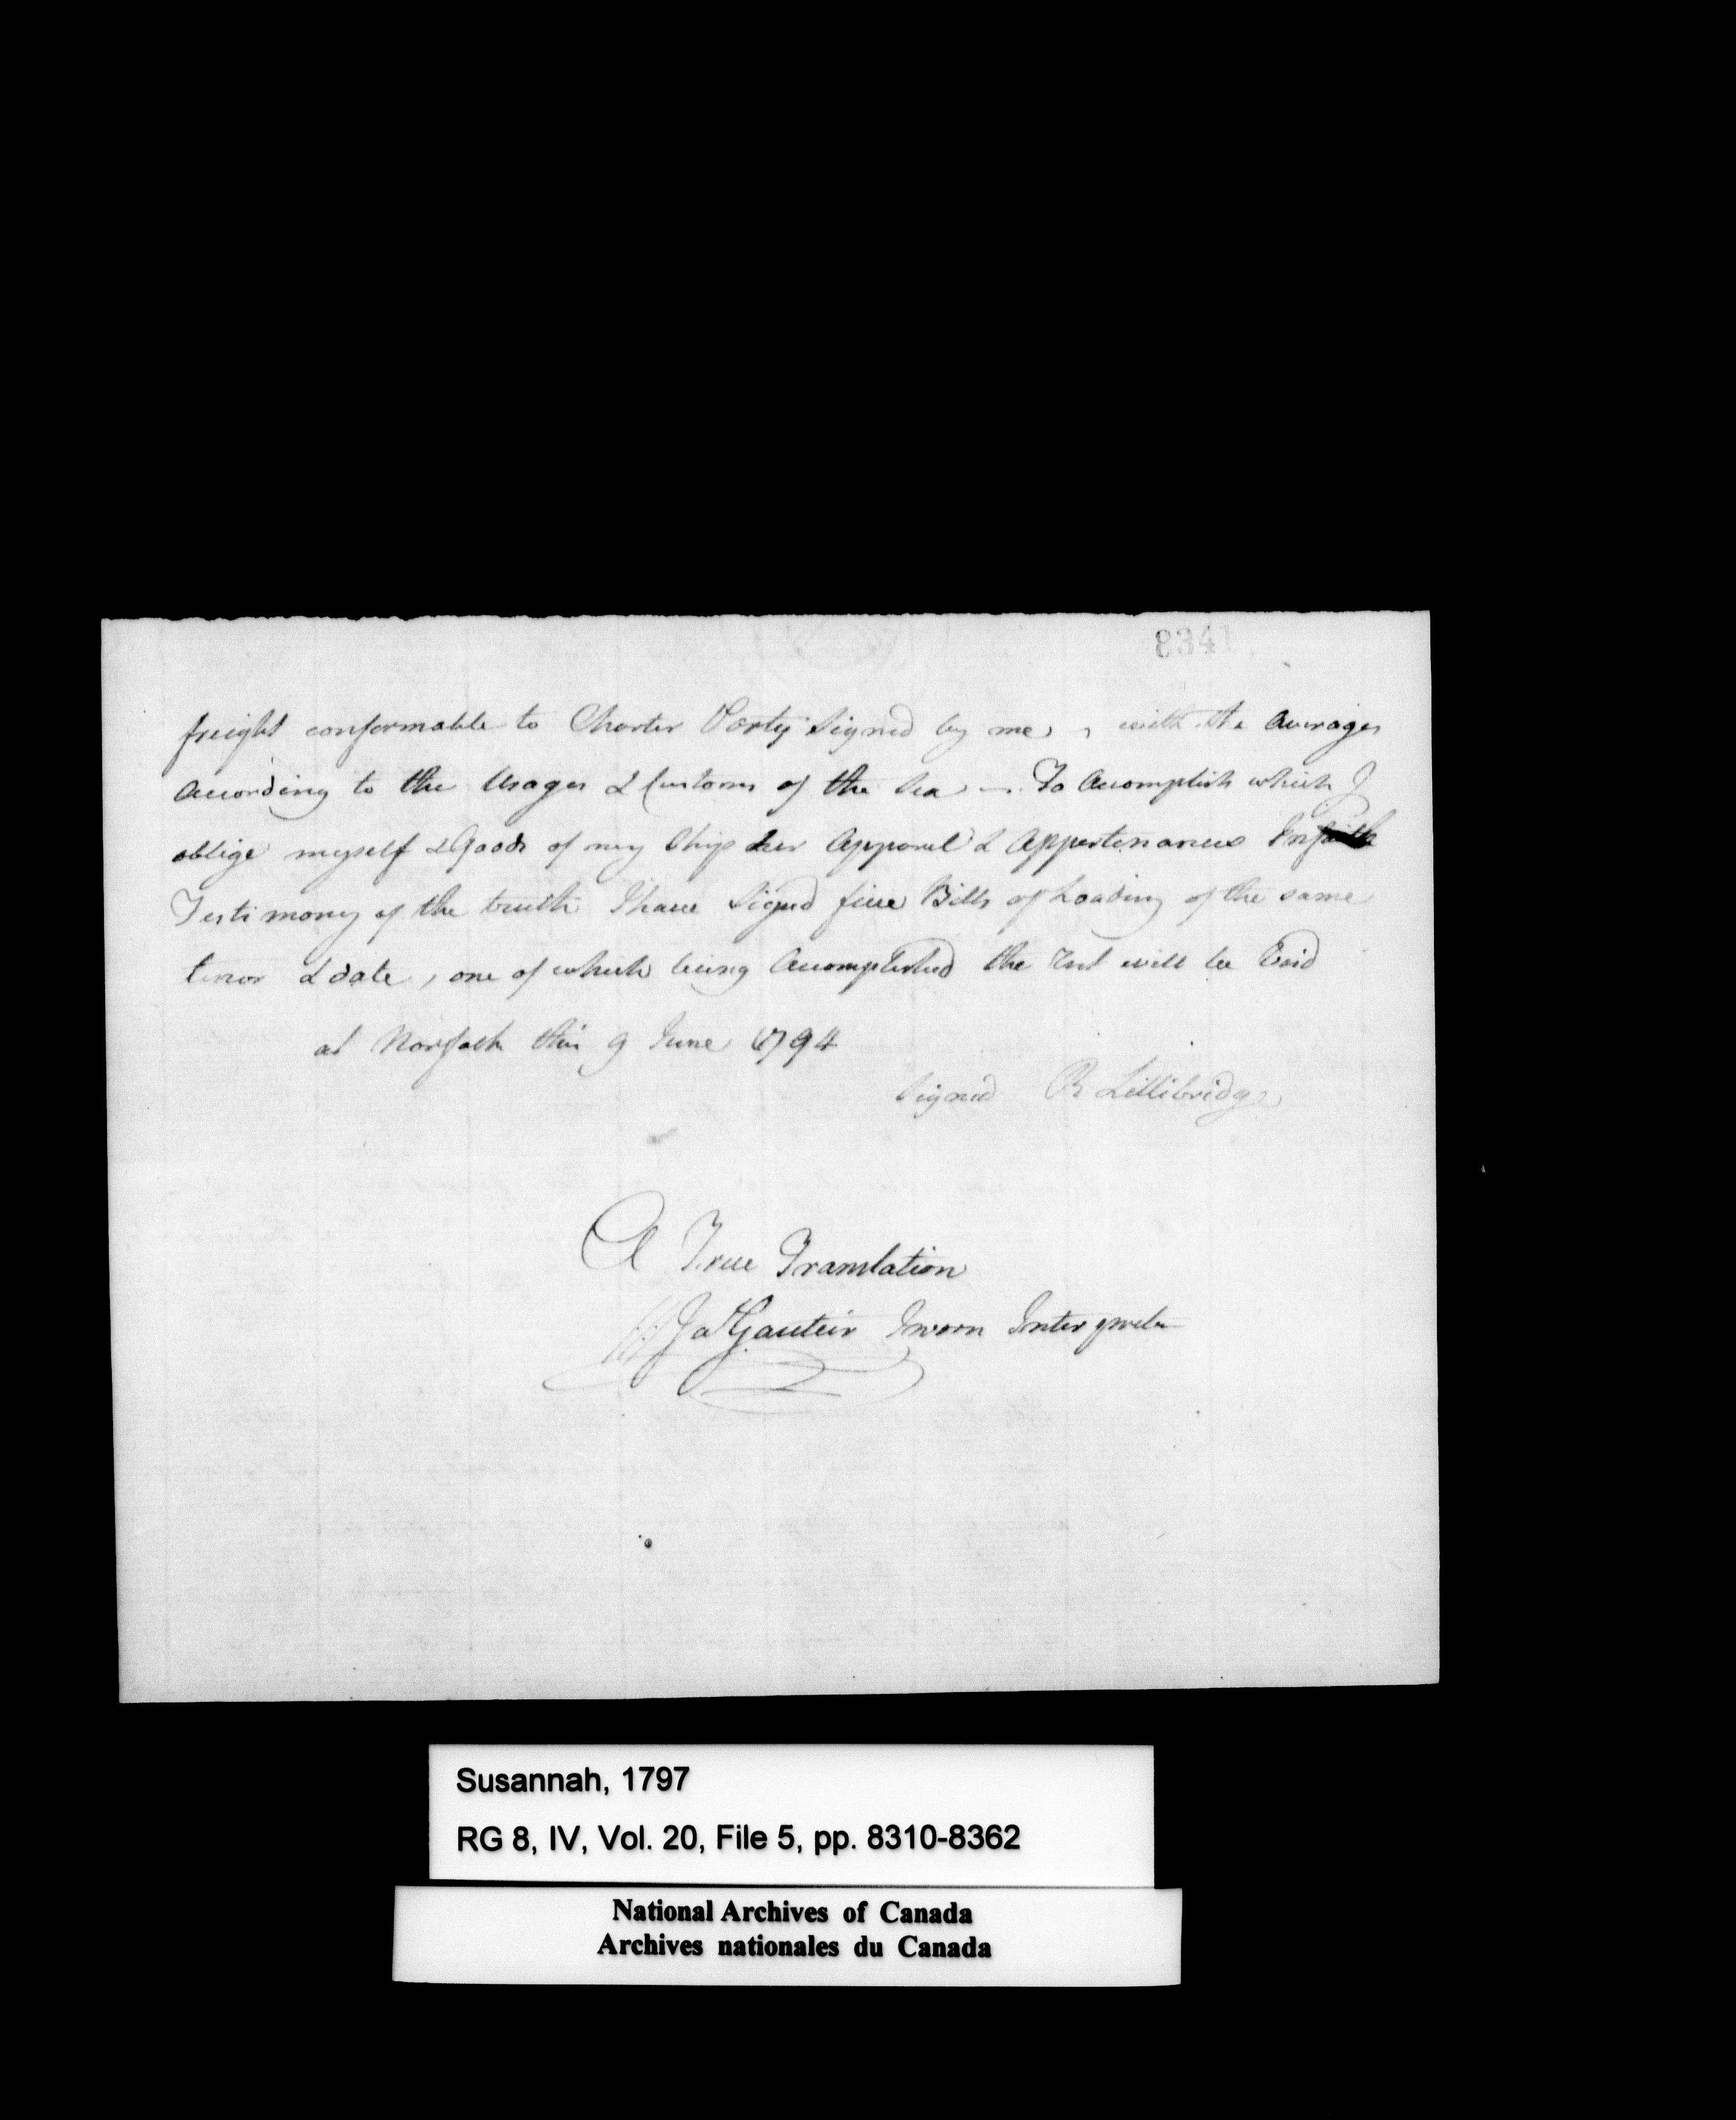 8341
freight conformable to Charter Party signed by me, with the averages
according to the Usages & Customs of the Sea — To accomplish which I
oblige myself & Goods of my Ship her Apparel & Appertenances In
Testimony of the truth I have Signed five Bills of Loading of the same
tenor & date, one of which being accomplished the rest will be Void
at Norfolk this 9 June 1794
Signed R Lillibridge
A True Translation
Gautier Sworn Interpreter
Susannah, 1797
RG 8, IV, Vol. 20, File 5, pp. 8310-8362
National Archives of Canada
Archives nationales du Canada